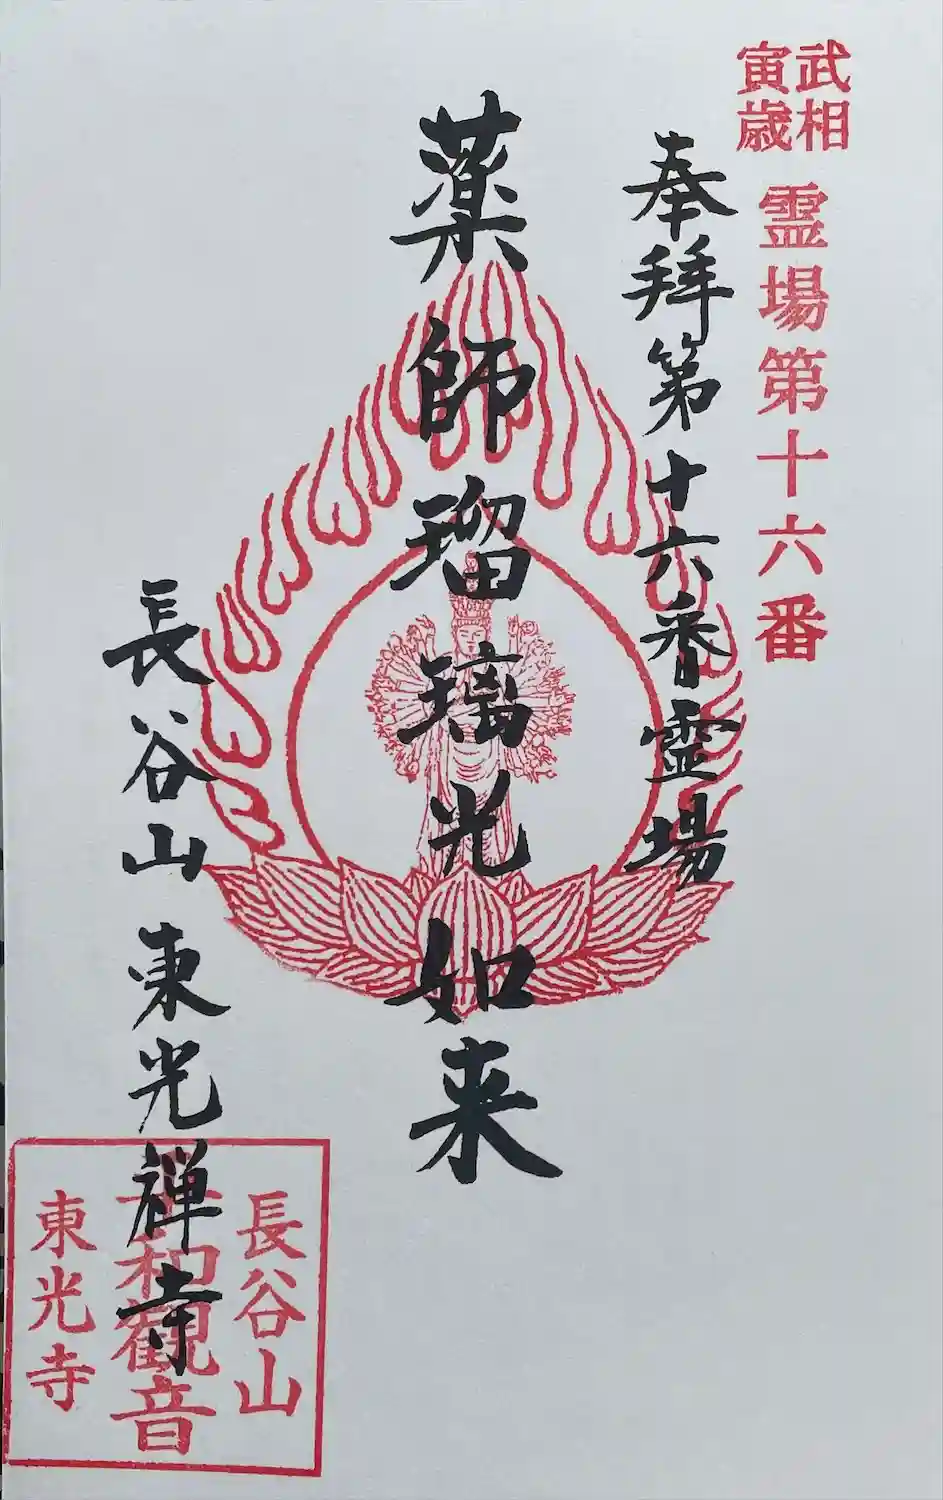 武相
寅歳
霊場第十六番
奉拝第十六番霊場
薬師瑠璃光如来
長谷山東光禅寺
長谷山
観音
東光寺